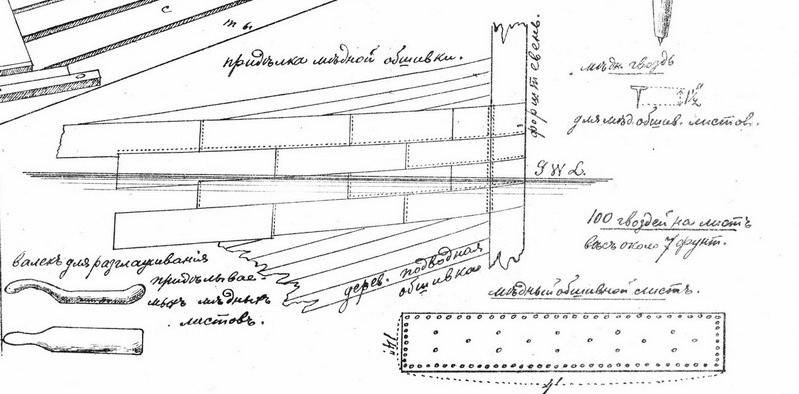 с
m ь.
придѣлка мѣдной обшивки.
форштевень.
мѣдн. гвоздь
1½"
для мѣд. обшив. листов.
G W L.
100 гвоздей на листъ
вѣсъ около 7 фунт.
валекъ для разглаживанія
придѣлывае-
мыхъ мѣдныхъ
листовъ.
дерев. подводная
обшивка
мѣдный обшивной листъ.
14"
4'